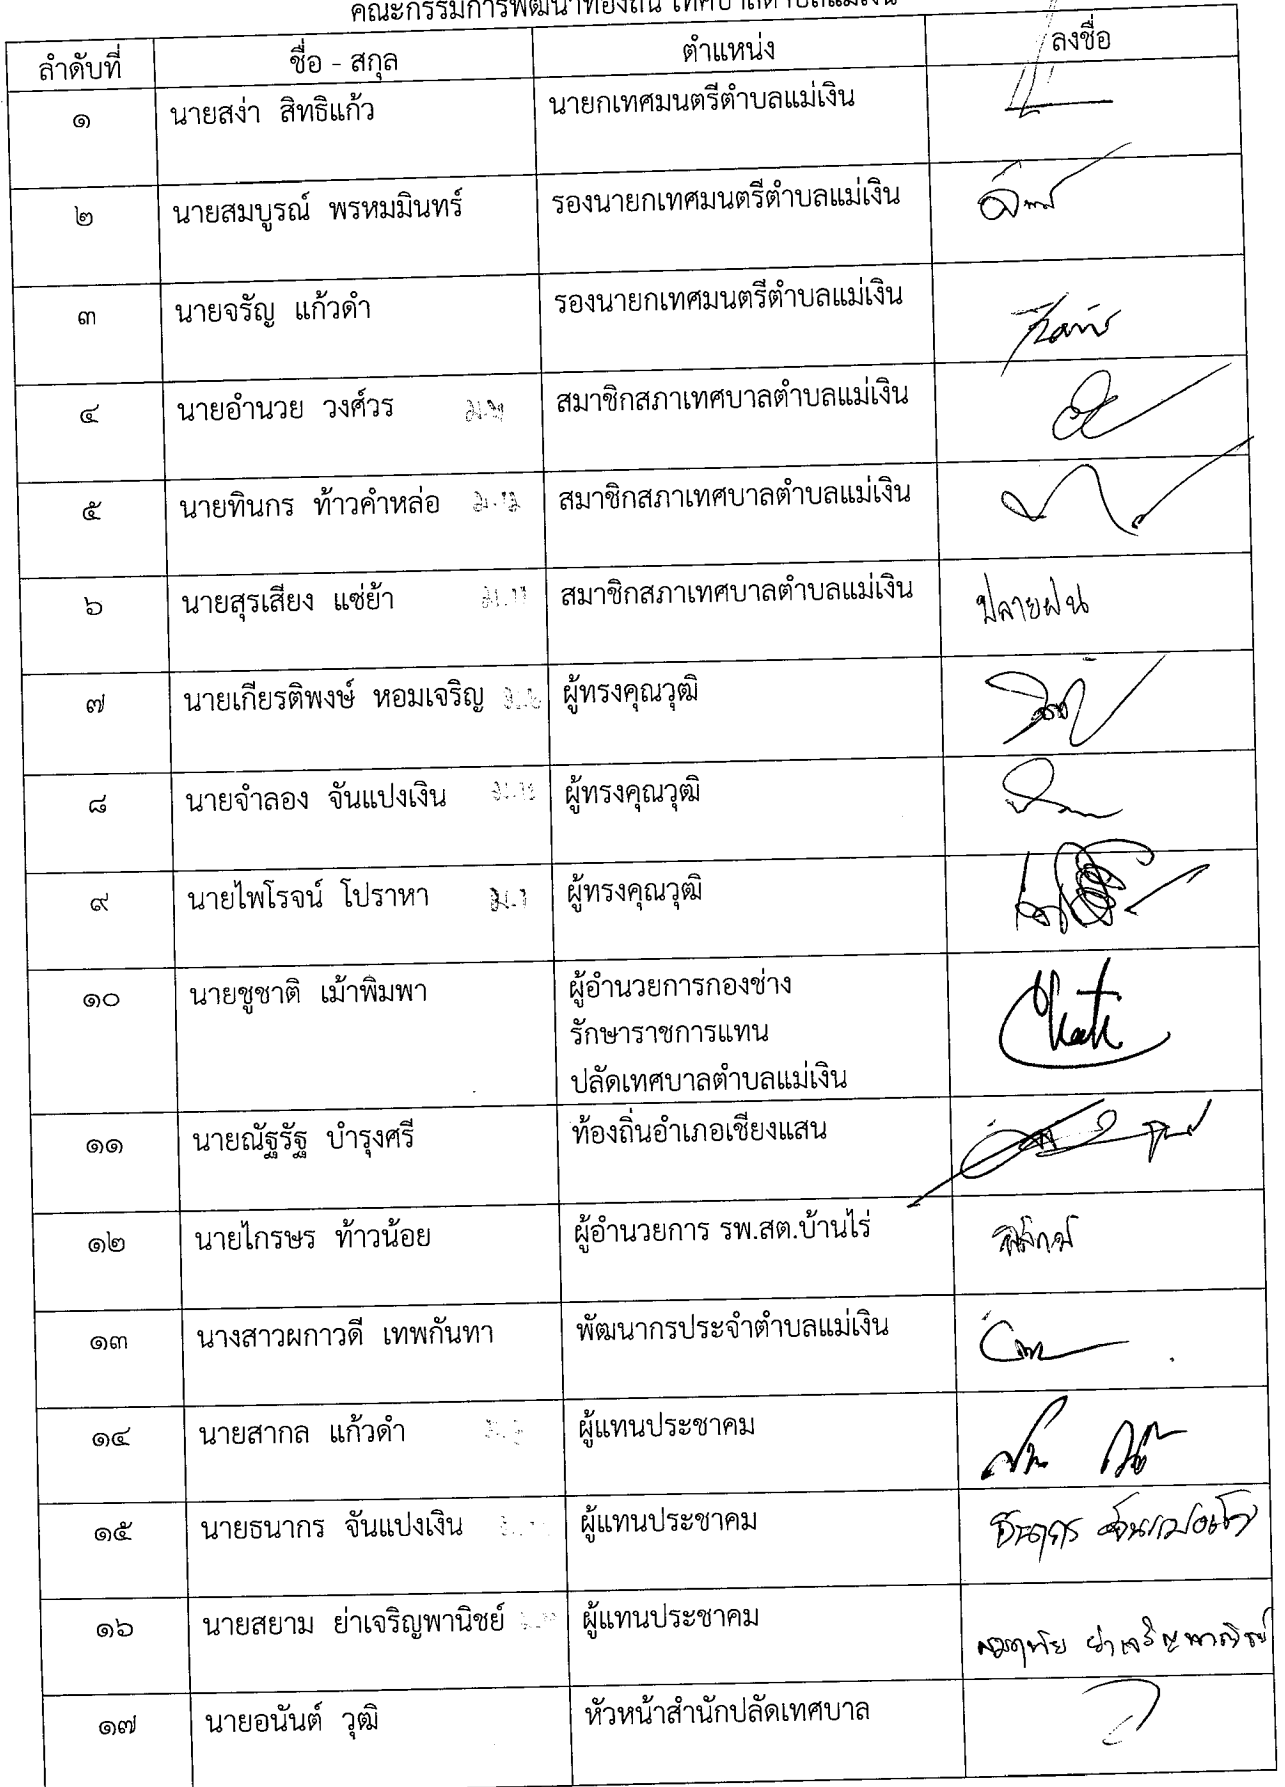 คณะกรรมการพัฒนาท้องถิ่น เทศบาลตำบลแม่เงิน
ลำดับที่ ชื่อ - สกุล ตำแหน่ง ลงชื่อ
๑ นายสง่า สิทธิแก้ว นายกเทศมนตรีตำบลแม่เงิน
๒ นายสมบูรณ์ พรหมมินทร์ รองนายกเทศมนตรีตำบลแม่เงิน
๓ นายจรัญ แก้วดำ รองนายกเทศมนตรีตำบลแม่เงิน
๔ นายอำนวย วงศ์วร สมาชิกสภาเทศบาลตำบลแม่เงิน
๕ นายทินกร ท้าวคำหล่อ สมาชิกสภาเทศบาลตำบลแม่เงิน
๖ นายสุรเสียง แซ่ย้า สมาชิกสภาเทศบาลตำบลแม่เงิน ปลายฝน
๗ นายเกียรติพงษ์ หอมเจริญ ผู้ทรงคุณวุฒิ
๘ นายจำลอง จันแปงเงิน ผู้ทรงคุณวุฒิ
๙ นายไพโรจน์ โปราหา ม.1 ผู้ทรงคุณวุฒิ
๑๐ นายชูชาติ เม้าพิมพา ผู้อำนวยการกองช่าง
รักษาราชการแทน
ปลัดเทศบาลตำบลแม่เงิน
๑๑ นายณัฐรัฐ บำรุงศรี ท้องถิ่นอำเภอเชียงแสน
๑๒ นายไกรษร ท้าวน้อย ผู้อำนวยการ รพ.สต.บ้านไร่
๑๓ นางสาวผกาวดี เทพกันทา พัฒนากรประจำตำบลแม่เงิน
๑๔ นายสากล แก้วดำ ผู้แทนประชาคม
๑๕ นายธนากร จันแปงเงิน ผู้แทนประชาคม ธนากร จันแปงเงิน
๑๖ นายสยาม ย่าเจริญพานิชย์ ผู้แทนประชาคม ย่าเจริญพาณิชย์
๑๗ นายอนันต์ วุฒิ หัวหน้าสำนักปลัดเทศบาล